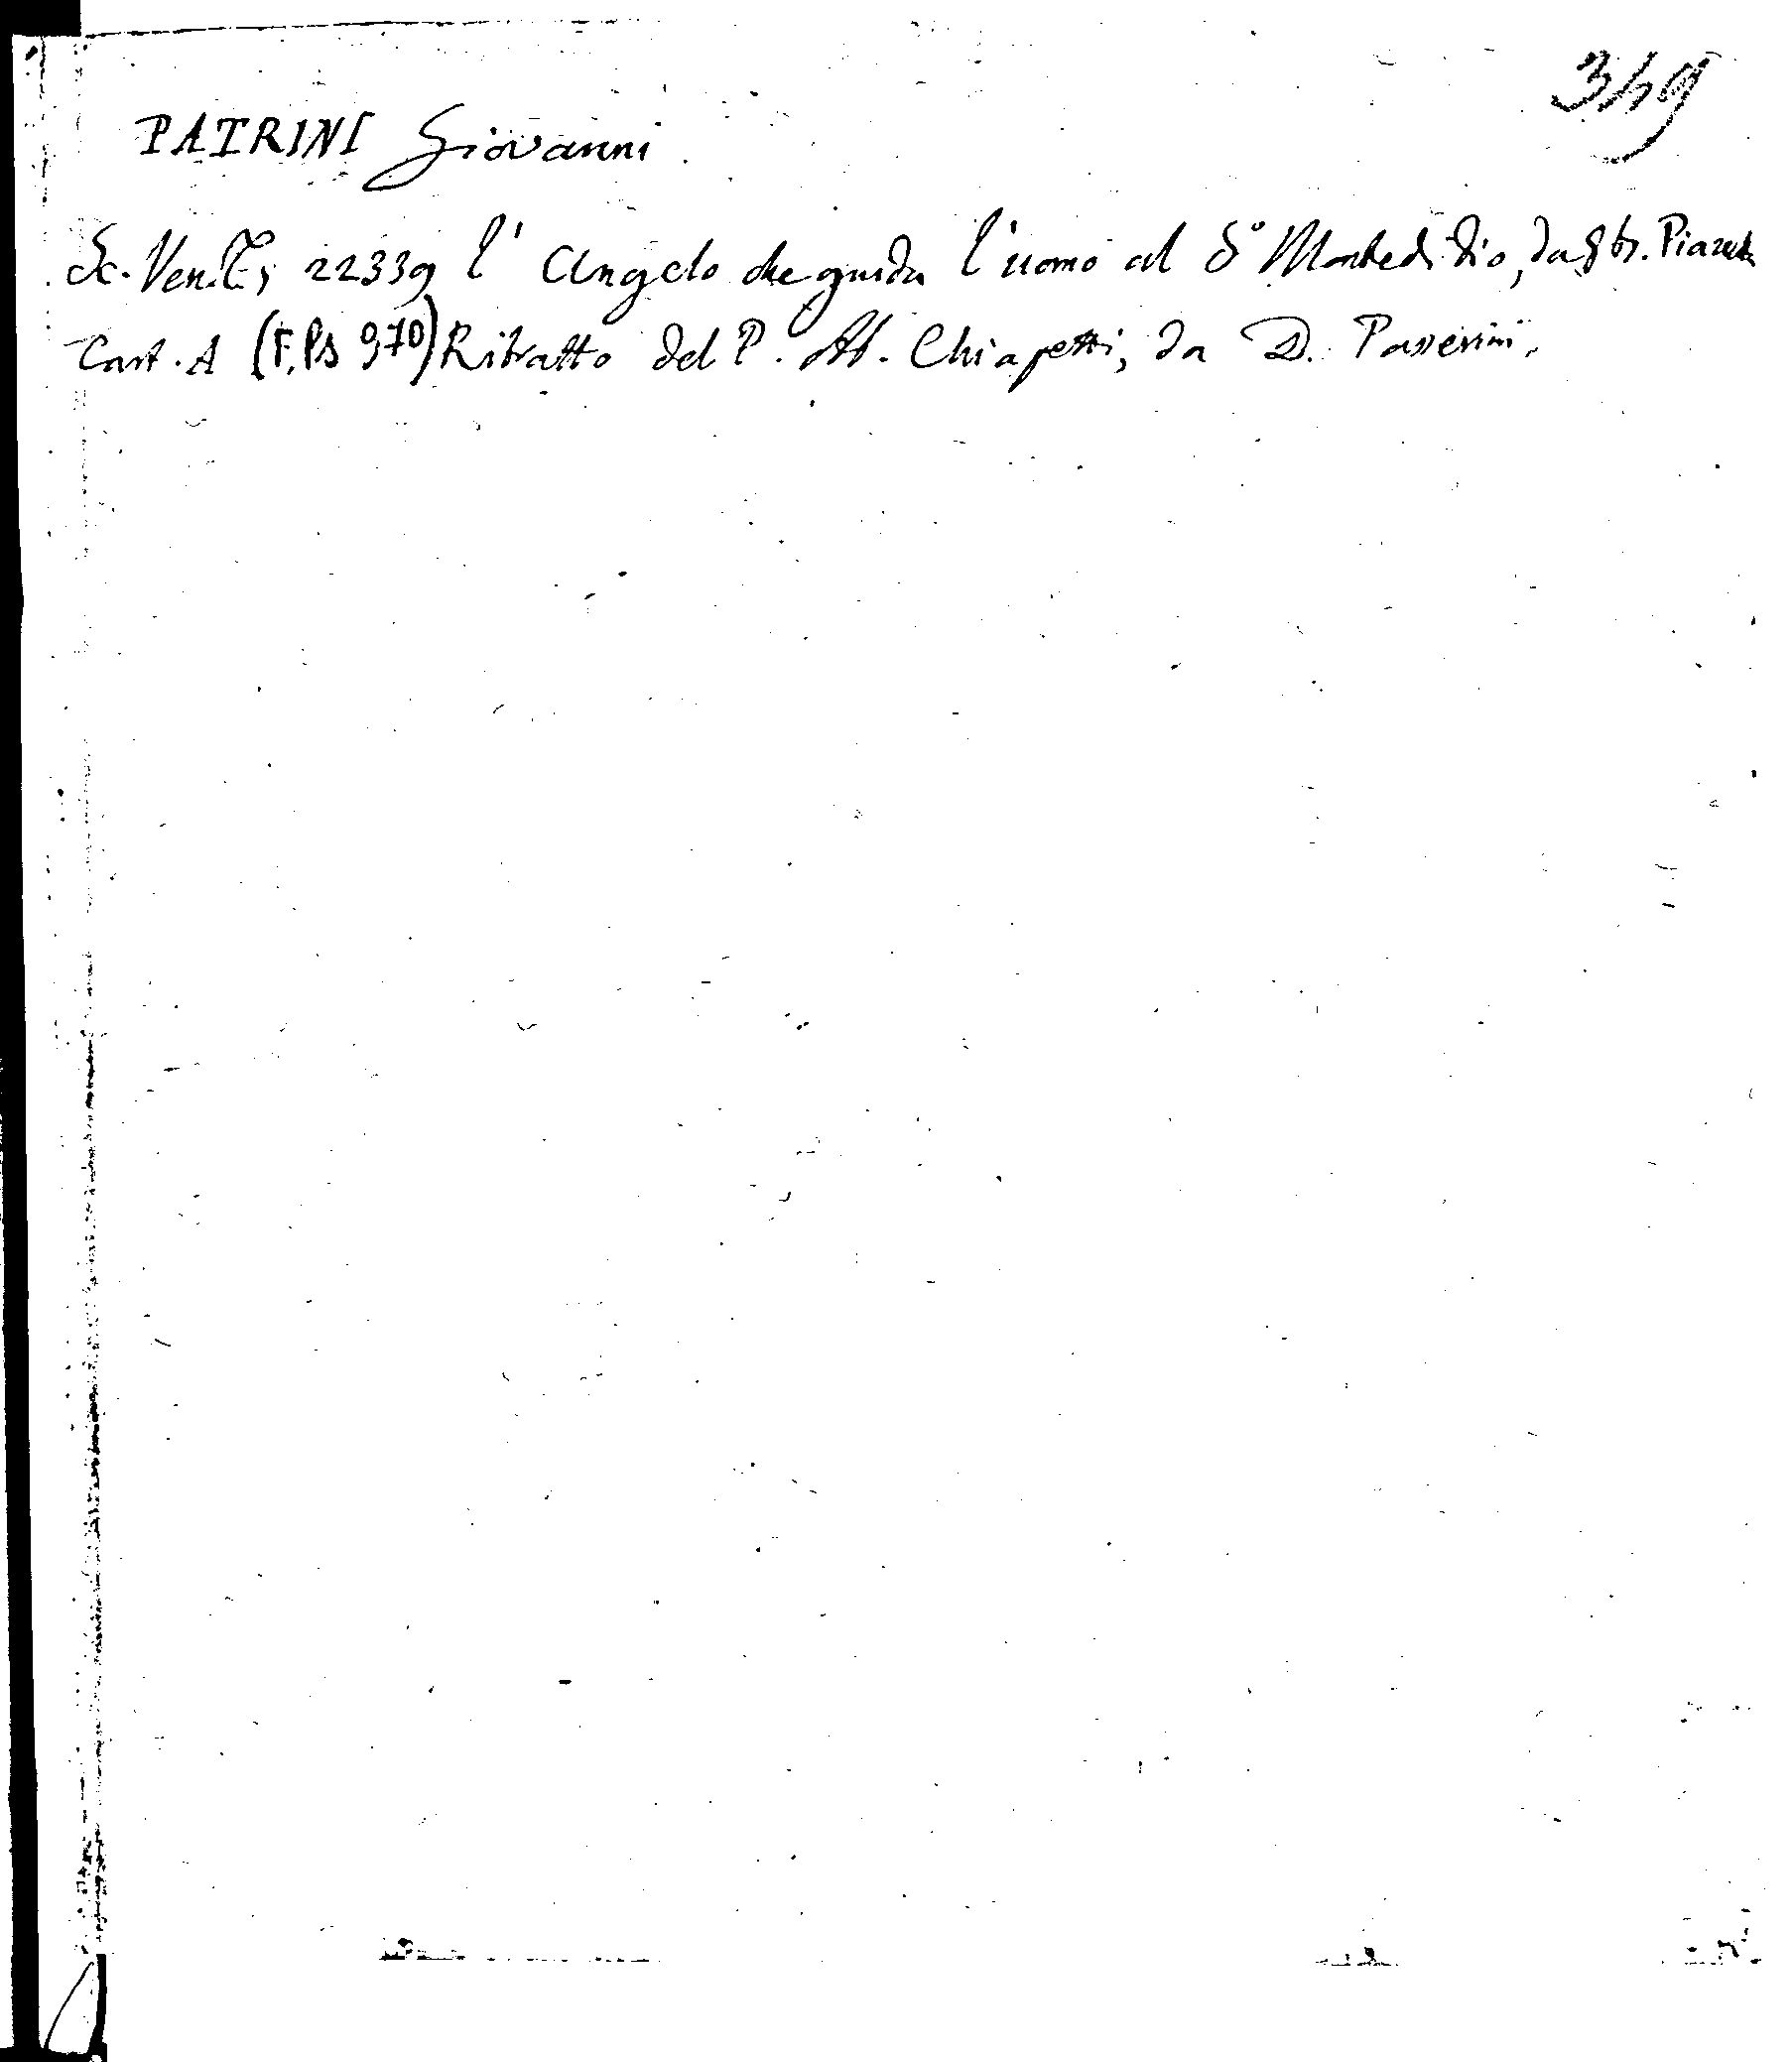 349
PATRINI Giovanni
Sc. Ven. 22339 l'Angelo che guida l'uomo al S° Monte di Dio, da Piazzetta
Cart. A (F. Ps 970) Ritratto del P. Ab. Chiapetti, da D. Passerini.